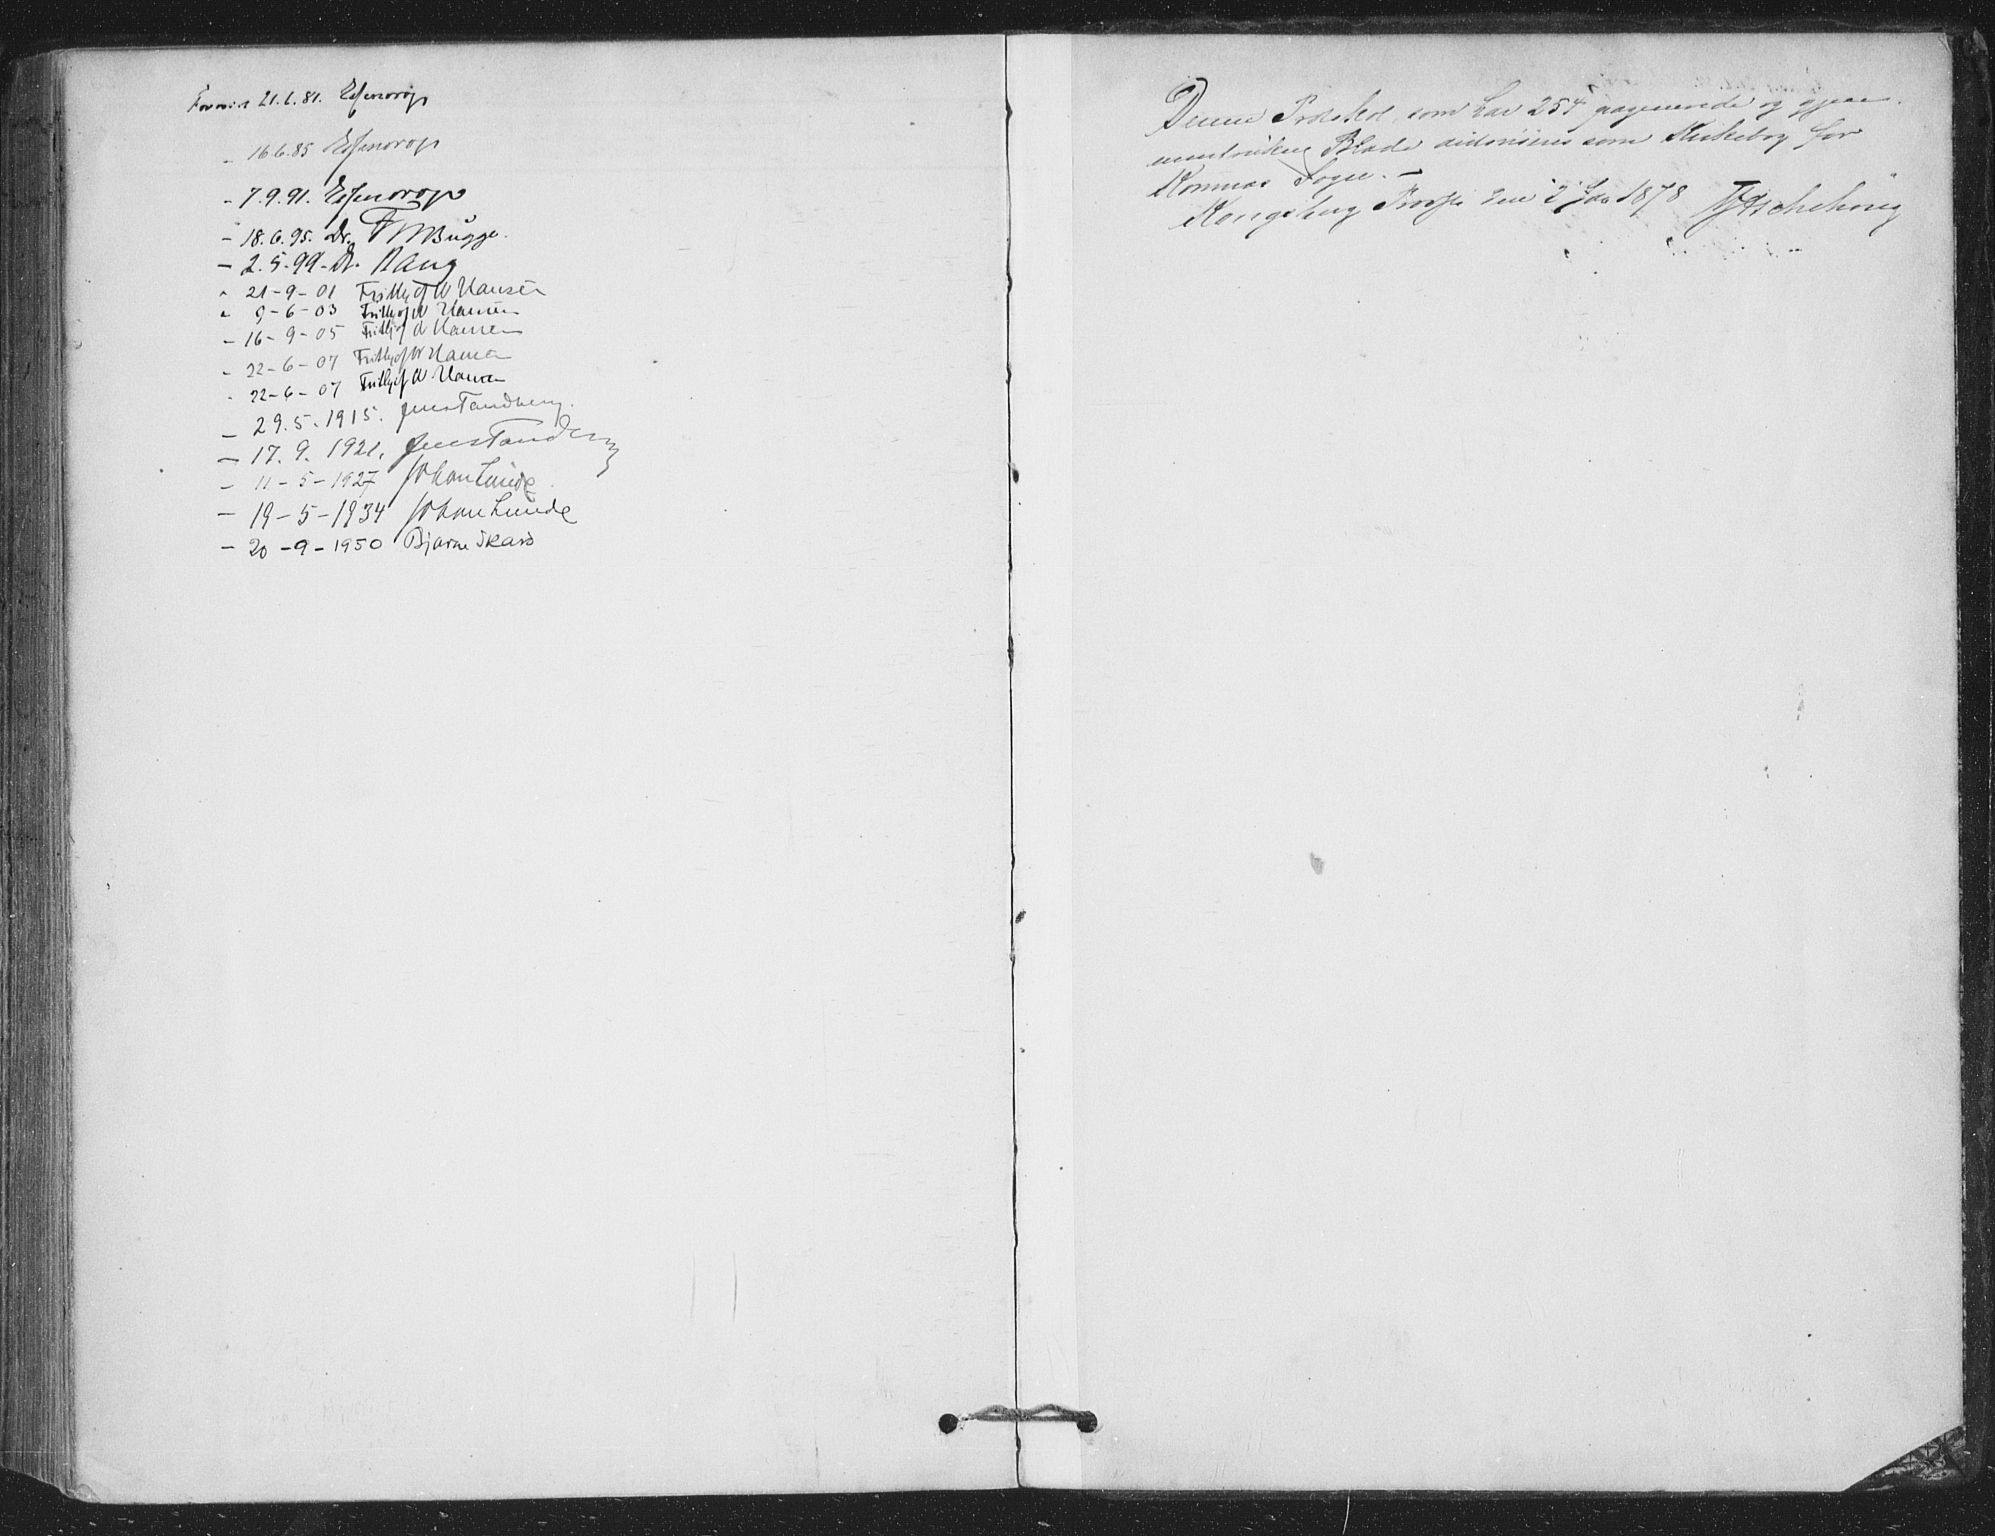 Forevist 21.6.81. Essendrop
– 16.6.85 Essendrop
– 7.9.91. Essendrop
– 18.6.95. Dr. F W Bugge.
– 2.5.99 – A. Bang
" 21–9–01 Frithjof W Hansen
" 9–6–03 Frithjof W Hansen
– 16–9–05 Frithjof W Hansen
– 22–6–07 Frithjof W Hansen
– 22–6–07 Frithjof W Hansen
– 29.5.1915. Jens Tandberg.
– 17.9.1921. Jens Tandberg
– 11–5–1927 Johan Lunde.
– 19–5–1934 Johan Lunde
– 20–9–1950 Bjarne Skard
Denne Protokol, som har 254 paginerede og gjen-
nemtrukne Blade autoriseres som Kirkebog for
Komnæs Sogn. –
Kongsberg Provsti den 2 Jan 1878 Aschehoug